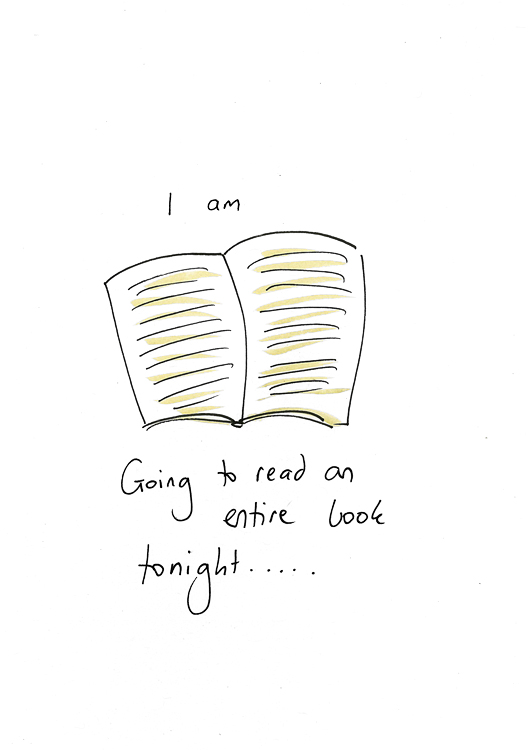 I am
Going to read an
entire book
tonight.....